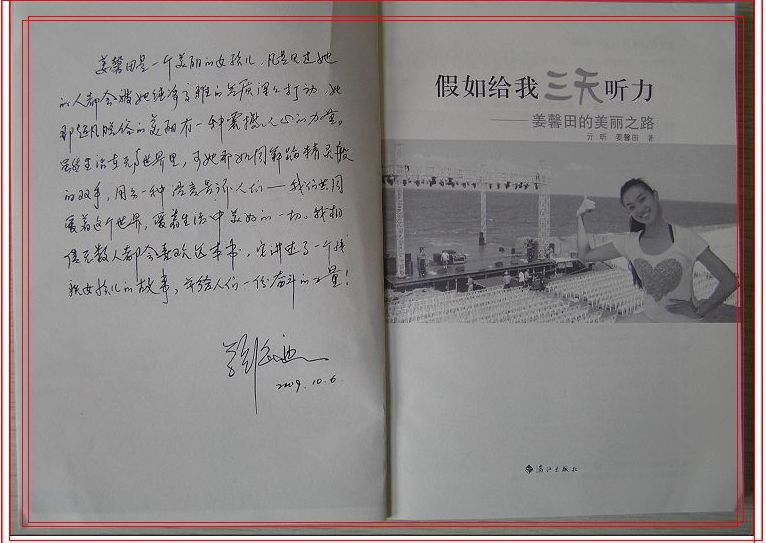 姜馨田是一个美丽的女孩儿，凡是见过她
的人都会被她纯净高雅的气质深深打动，她
那超凡脱俗的美丽有一种震撼人心的力量。
虽然生活在无声世界里，可她那如同舞蹈精灵般
的双手，用另一种语言告诉人们——我们共同
爱着这个世界，爱着生活中美好的一切。我相
信无数人都会喜欢这本书，它讲述了一个残
疾女孩儿的故事，并给人们一份奋斗的力量！
2009.10.6.
假如给我三天听力
——姜馨田的美丽之路
亓昕 姜馨田 著
漓江出版社